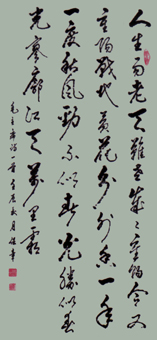 人生易老天難老歲々重陽今又
重陽戰地黄花分外香一年
一度秋風勁不似春光勝似春
光寥廓江天萬里霜
毛主席詞一首 秋月